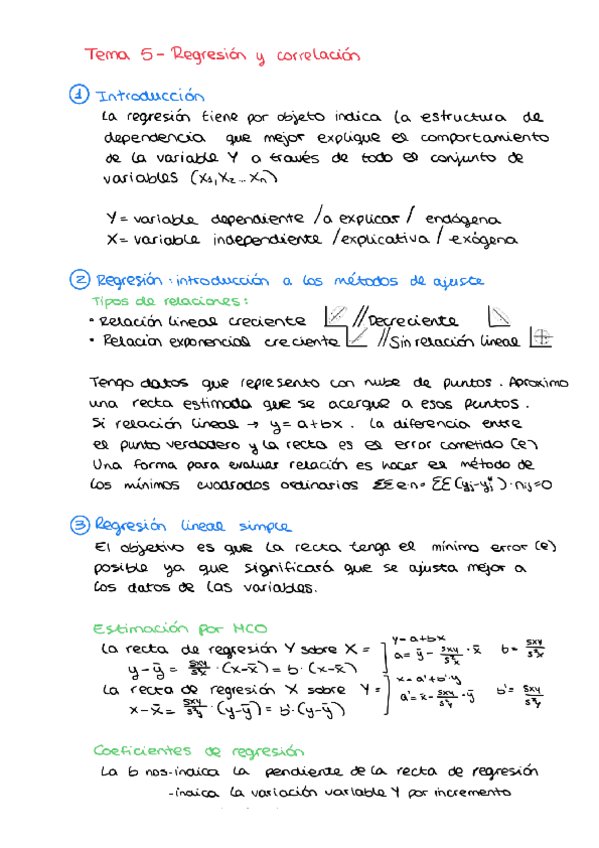 Tema 5 - Regresión y correlación
① Introducción
La regresión tiene por objeto indica la estructura de
dependencia que mejor explique el comportamiento
de la variable Y a través de todo el conjunto de
variables (X₁,X₂...Xn)
Y = variable dependiente / a explicar / endógena
X = variable independiente / explicativa / exógena
② Regresión: introducción a los métodos de ajuste
Tipos de relaciones:
• Relación lineal creciente // Decreciente
• Relación exponencial creciente // Sin relación lineal
Tengo datos que represento con nube de puntos. Aproximo
una recta estimada que se acerque a esos puntos.
Si relación lineal → y = a+bx. La diferencia entre
el punto verdadero y la recta es el error cometido (e)
Una forma para evaluar relación es hacer el método de
los mínimos cuadrados ordinarios ΣΣe·n = ΣΣ(yj-yj*)·nij=0
③ Regresión lineal simple
El objetivo es que la recta tenga el mínimo error (e)
posible ya que significará que se ajusta mejor a
los datos de las variables.
Estimación por MCO
La recta de regresión Y sobre X = y = a+bx
y-ȳ = Sxy/S²x · (x-x̄) = b·(x-x̄) a = ȳ - Sxy/S²x · x̄ b = Sxy/S²x
La recta de regresión X sobre Y = x = a'+b'·y
x-x̄ = Sxy/S²y · (y-ȳ) = b'·(y-ȳ) a' = x̄ - Sxy/S²y · ȳ b' = Sxy/S²y
Coeficientes de regresión
La b nos -indica la pendiente de la recta de regresión
-indica la variación variable Y por incremento